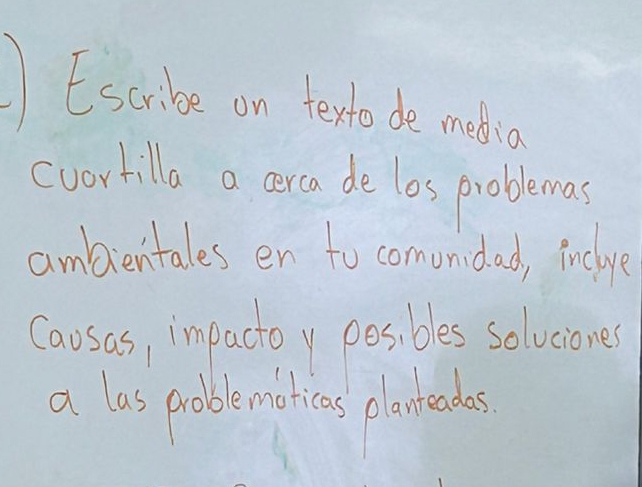 ) Escribe un texto de media
cuartilla a cerca de los problemas
ambientales en tu comunidad, incluye
Causas, impacto y posibles soluciones
a las problemáticas planteadas.